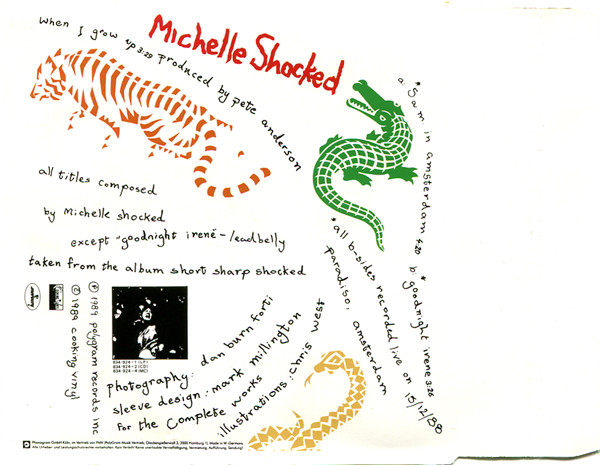 Michelle Shocked
when I grow up 3:29 produced by pete anderson
* 5am in
a: amsterdam 4:20 b: goodnight irene 3:26
* all b-sides recorded live on 15/12/88
paradiso, amsterdam
all titles composed
by Michelle shocked
except "goodnight irene"-leadbelly
taken from the album short sharp shocked
℗ 1989 polygram records inc
© 1989 cooking vinyl
834 924-1 (LP)
834 924-2 (CD)
834 924-4 (MC)
photography: dan burn forti
sleeve design: mark millington
for the Complete works
illustrations: chris west
Phonogram GmbH Köln, im Vertrieb von PMV (PolyGram Musik Vertrieb, Glockengießerwall 3, 2000 Hamburg 1) Made in W.-Germany
Alle Urheber- und Leistungsschutzrechte vorbehalten. Kein Verleih! Keine unerlaubte Vervielfältigung, Vermietung, Aufführung, Sendung!